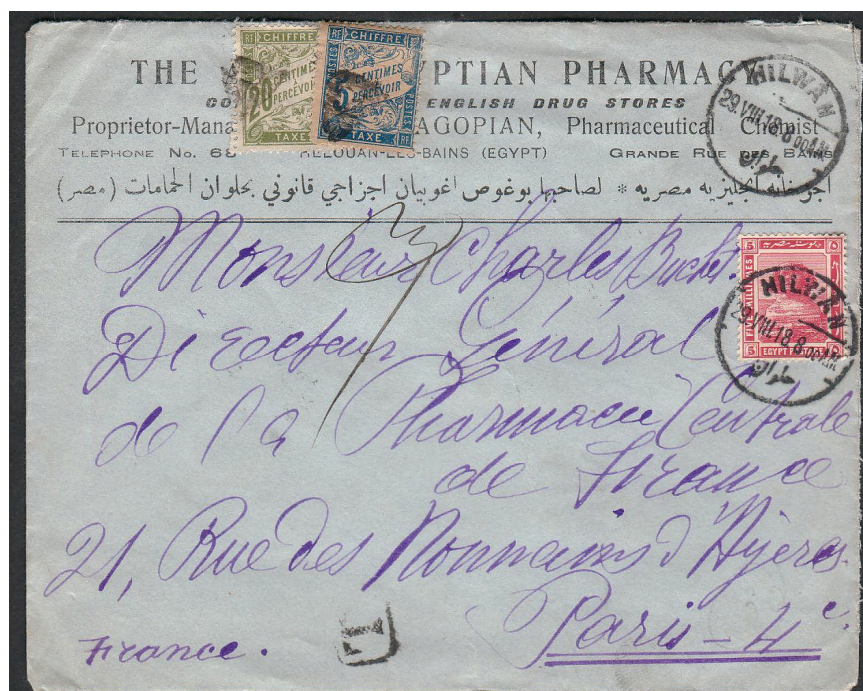 THE PTIAN PHARMACY
CO ENGLISH DRUG STORES
Proprietor-Mana AGOPIAN, Pharmaceutical Chemist
TELEPHONE No. 68 HELOUAN-LES-BAINS (EGYPT) GRANDE RUE DES BAINS
اجزخانه انجليزيه مصريه * لصاحبها بوغوص اغوبيان اجزاجي قانوني بحلوان الحمامات (مصر)
CHIFFRE
20 CENTIMES
A PERCEVOIR
TAXE
RF CHIFFRE
POSTES
5 CENTIMES
A PERCEVOIR
TAXE RF
HILWAN
29.VIII.18.8 00AM
حلوان
5 ٥
FIVE MILLIEMES
5 EGYPT
HILWAN
29.VIII.18.8 00AM
حلوان
Monsieur Charles
Directeur Général
de la Pharmacie Centrale
de France
21, Rue des Nonnains d'Hyères
Paris - 4e.
France.
T